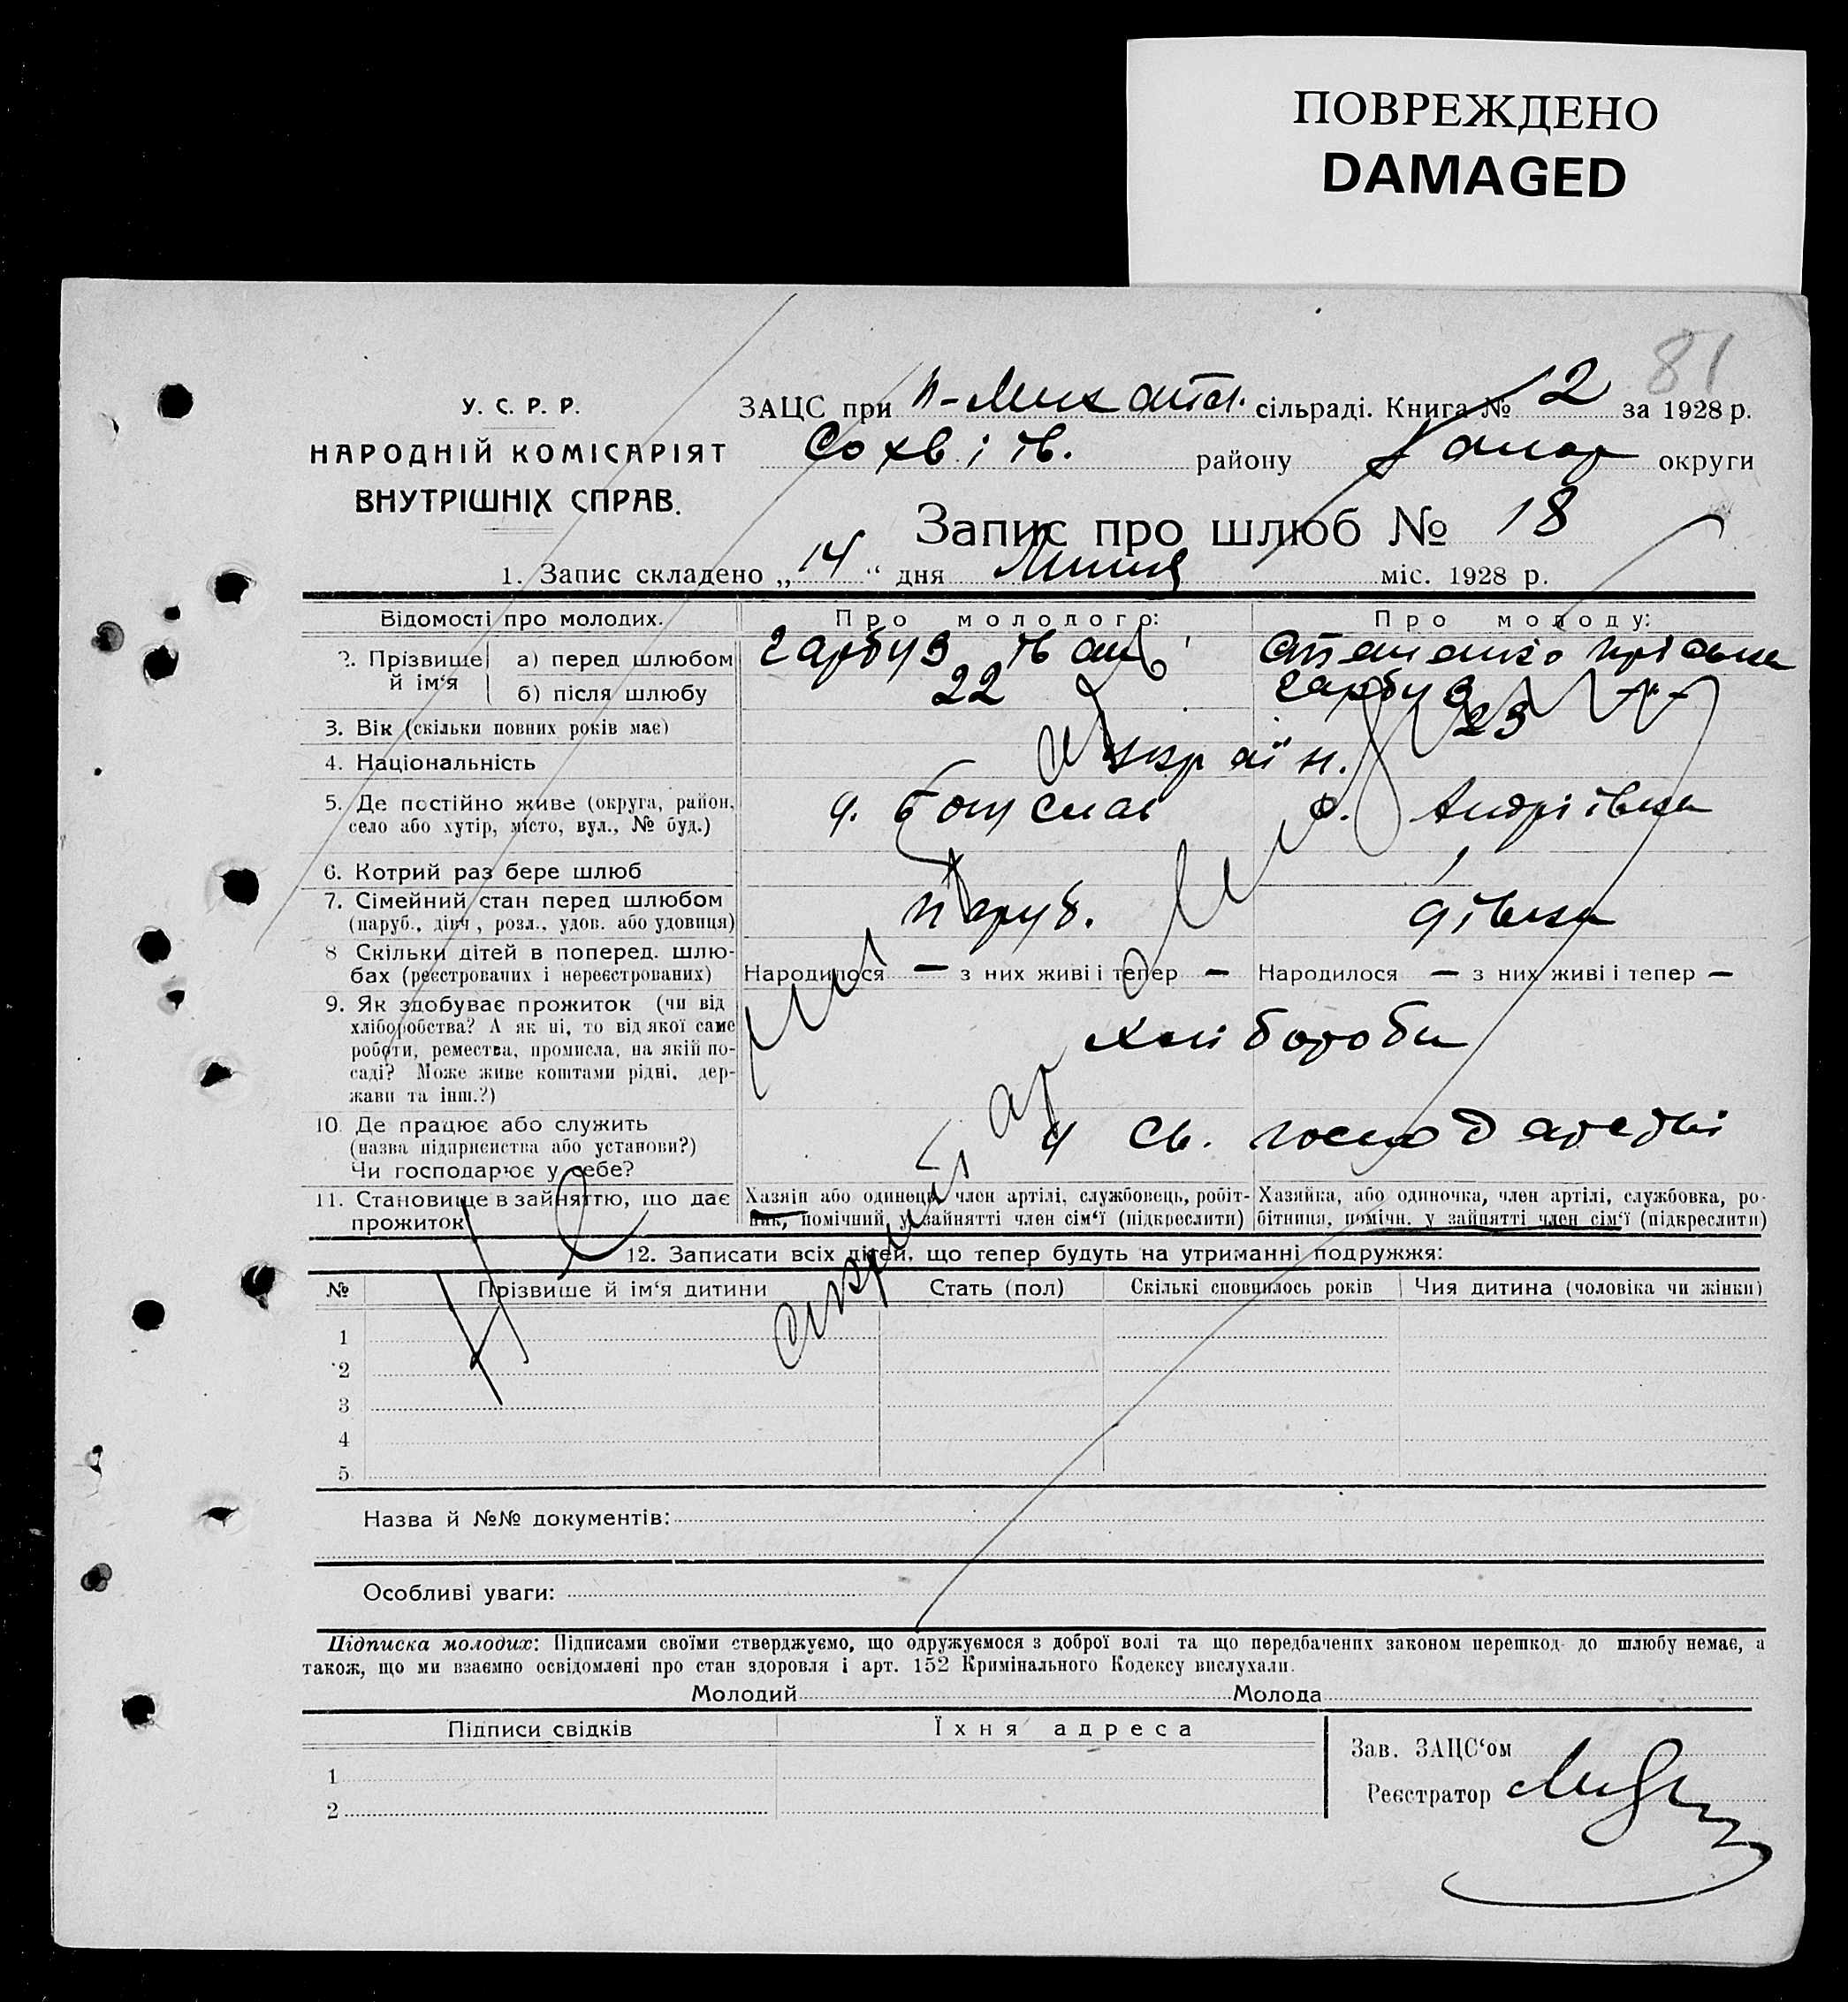 ПОВРЕЖДЕНО
DAMAGED
81
У. С. Р. Р.
НАРОДНІЙ КОМІСАРІЯТ
ВНУТРІШНІХ СПРАВ.
ЗАЦС при сільраді. Книга № 2 за 1928 р.
Сохвіїв. району округи
Запис про шлюб № 18
1. Запис складено „ 14 “ дня Липня міс. 1928 р.
Відомості про молодих. Про молодого: Про молоду:
2. Прізвище й ім‘я а) перед шлюбом Гарбуз Іван
б) після шлюбу Гарбуз
3. Вік (скільки повних років має) 22 23
4. Національність україн.
5. Де постійно живе (округа, район, село або хутір, місто, вул., № буд.) Андріївка
6. Котрий раз бере шлюб 1
7. Сімейний стан перед шлюбом (паруб., дівч, розл., удов. або удовиця) паруб. дівка
8 Скільки дітей в поперед. шлюбах (реєстрованих і нереєстрованих) Народилося — з них живі і тепер — Народилося — з них живі і тепер —
9. Як здобуває прожиток (чи від
хліборобства? А як ні, то від якої саме
роботи, ремества, промисла, на якій по-
саді? Може живе коштами рідні, дер-
жави та інш.?)
хлібороби
10 Де працює або служить
(назва підприємства або установи?)
Чи господарює у себе?
у св. господарстві
11. Становище в зайняттю, що дає
прожиток
Хазяїн або одинець, член артілі, службовець, робіт-
ник, помічний у зайнятті член сім‘ї (підкреслити)
Хазяйка, або одиночка, член артілі, службовка, ро-
бітниця, помічн. у зайнятті член сім‘ї (підкреслити)
12. Записати всіх дітей, що тепер будуть на утриманні подружжя:
№ Прізвище й ім‘я дитини Стать (пол) Скількі сповнилось років Чия дитина (чоловіка чи жінки)
1
2
3
4
5
Назва й №№ документів:
Особливі уваги:
Підписка молодих: Підписами своїми стверджуємо, що одружуємося з доброї волі та що передбачених законом перешкод до шлюбу немає, а
також, що ми взаємно освідомлені про стан здоровля і арт. 152 Кримінального Кодексу вислухали.
Молодий Молода
Підписи свідків Їхня адреса
1
2
Зав. ЗАЦС‘ом
Реєстратор